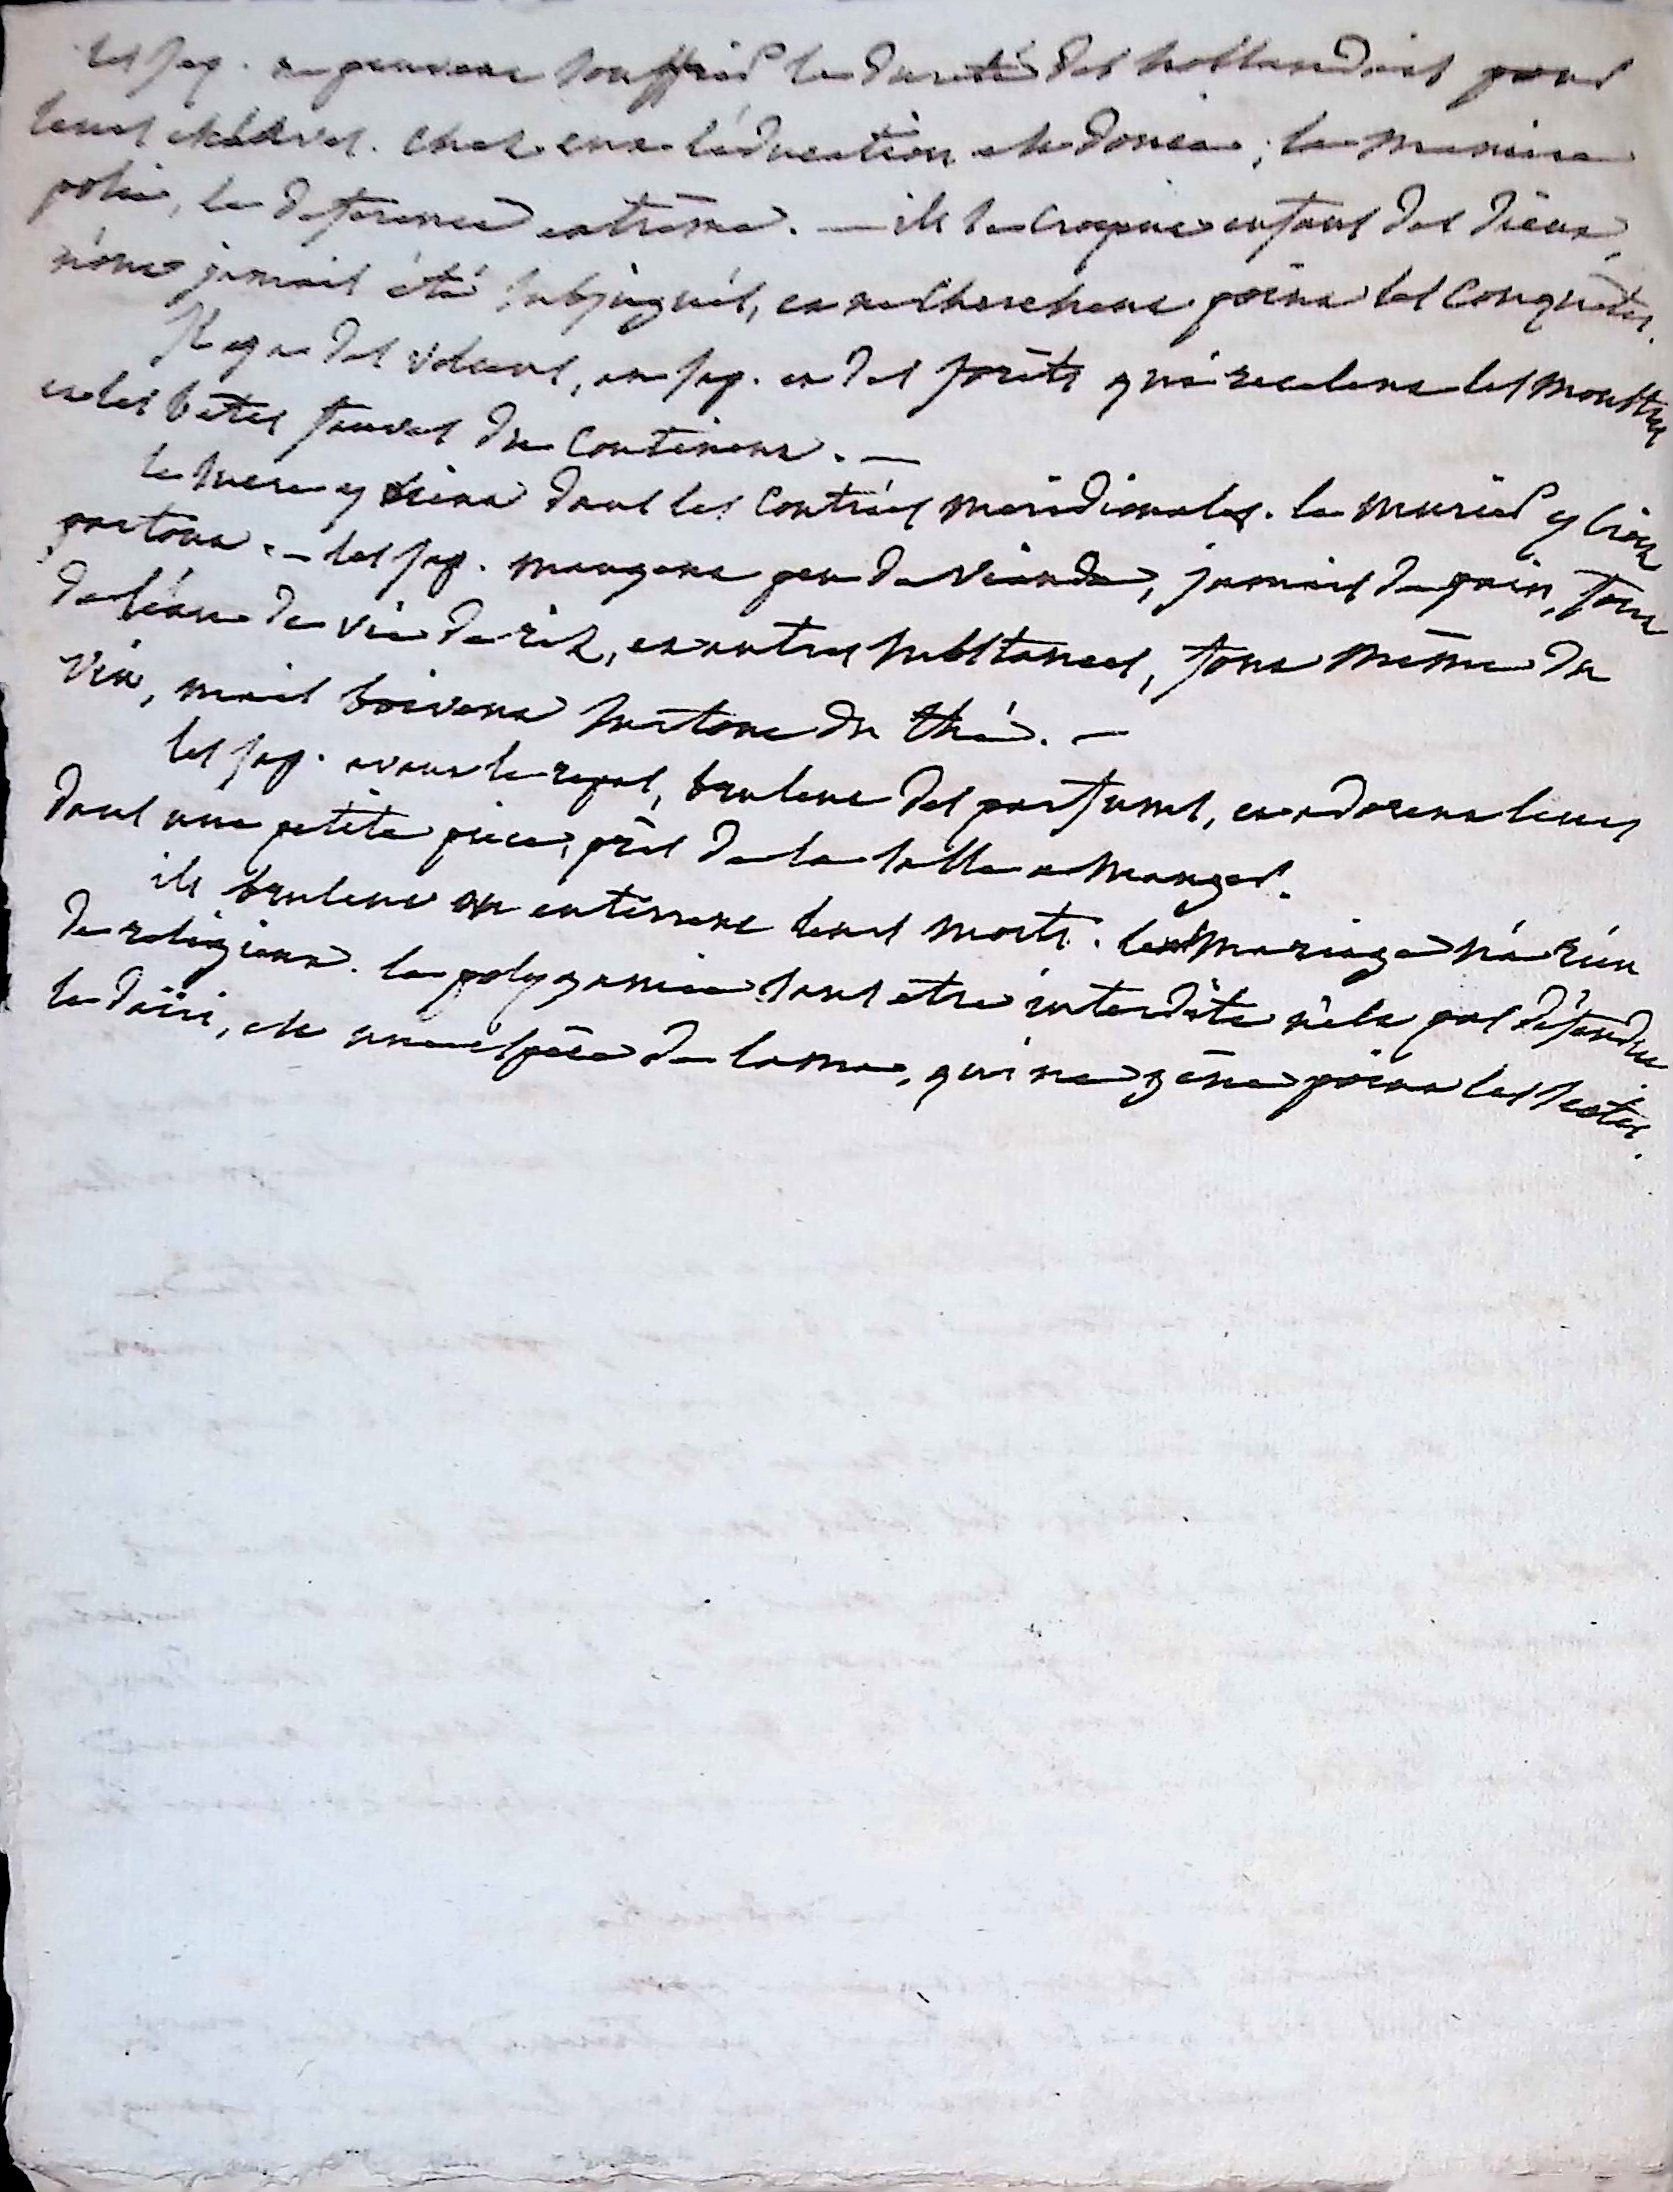 les jap. ne peuvent souffrir la dureté des hollandais pour
leurs esclaves. chez eux l'éducation est douce; la maniere
polie, la deference extrême. — ils se croyent enfans des dieux,
n'ont jamais été subjugués, et ne cherchent point les conquêtes.
Il y a des volcans, au jap. et des forêts qui recelent les monstres
et les bêtes fauves du continent. —
le sucre y vient dans les contrées méridionales. le murier y croit
partout. — les jap. mangent peu de viande, jamais de pain, font
de l'eau de vie de riz, et autres substances, font même du
vin, mais boivent surtout du thé. —
les jap. avant le repas, brulent des parfums, et adorent leurs
dans une petite piece, près de la salle a manger.
ils brulent ou enterrent leurs morts. le mariage n'a rien
de religieux. la polygamie sans etre interdite n'est pas défendue.
le daïri, est une espèce de lama, qui ne gêne point les sectes.